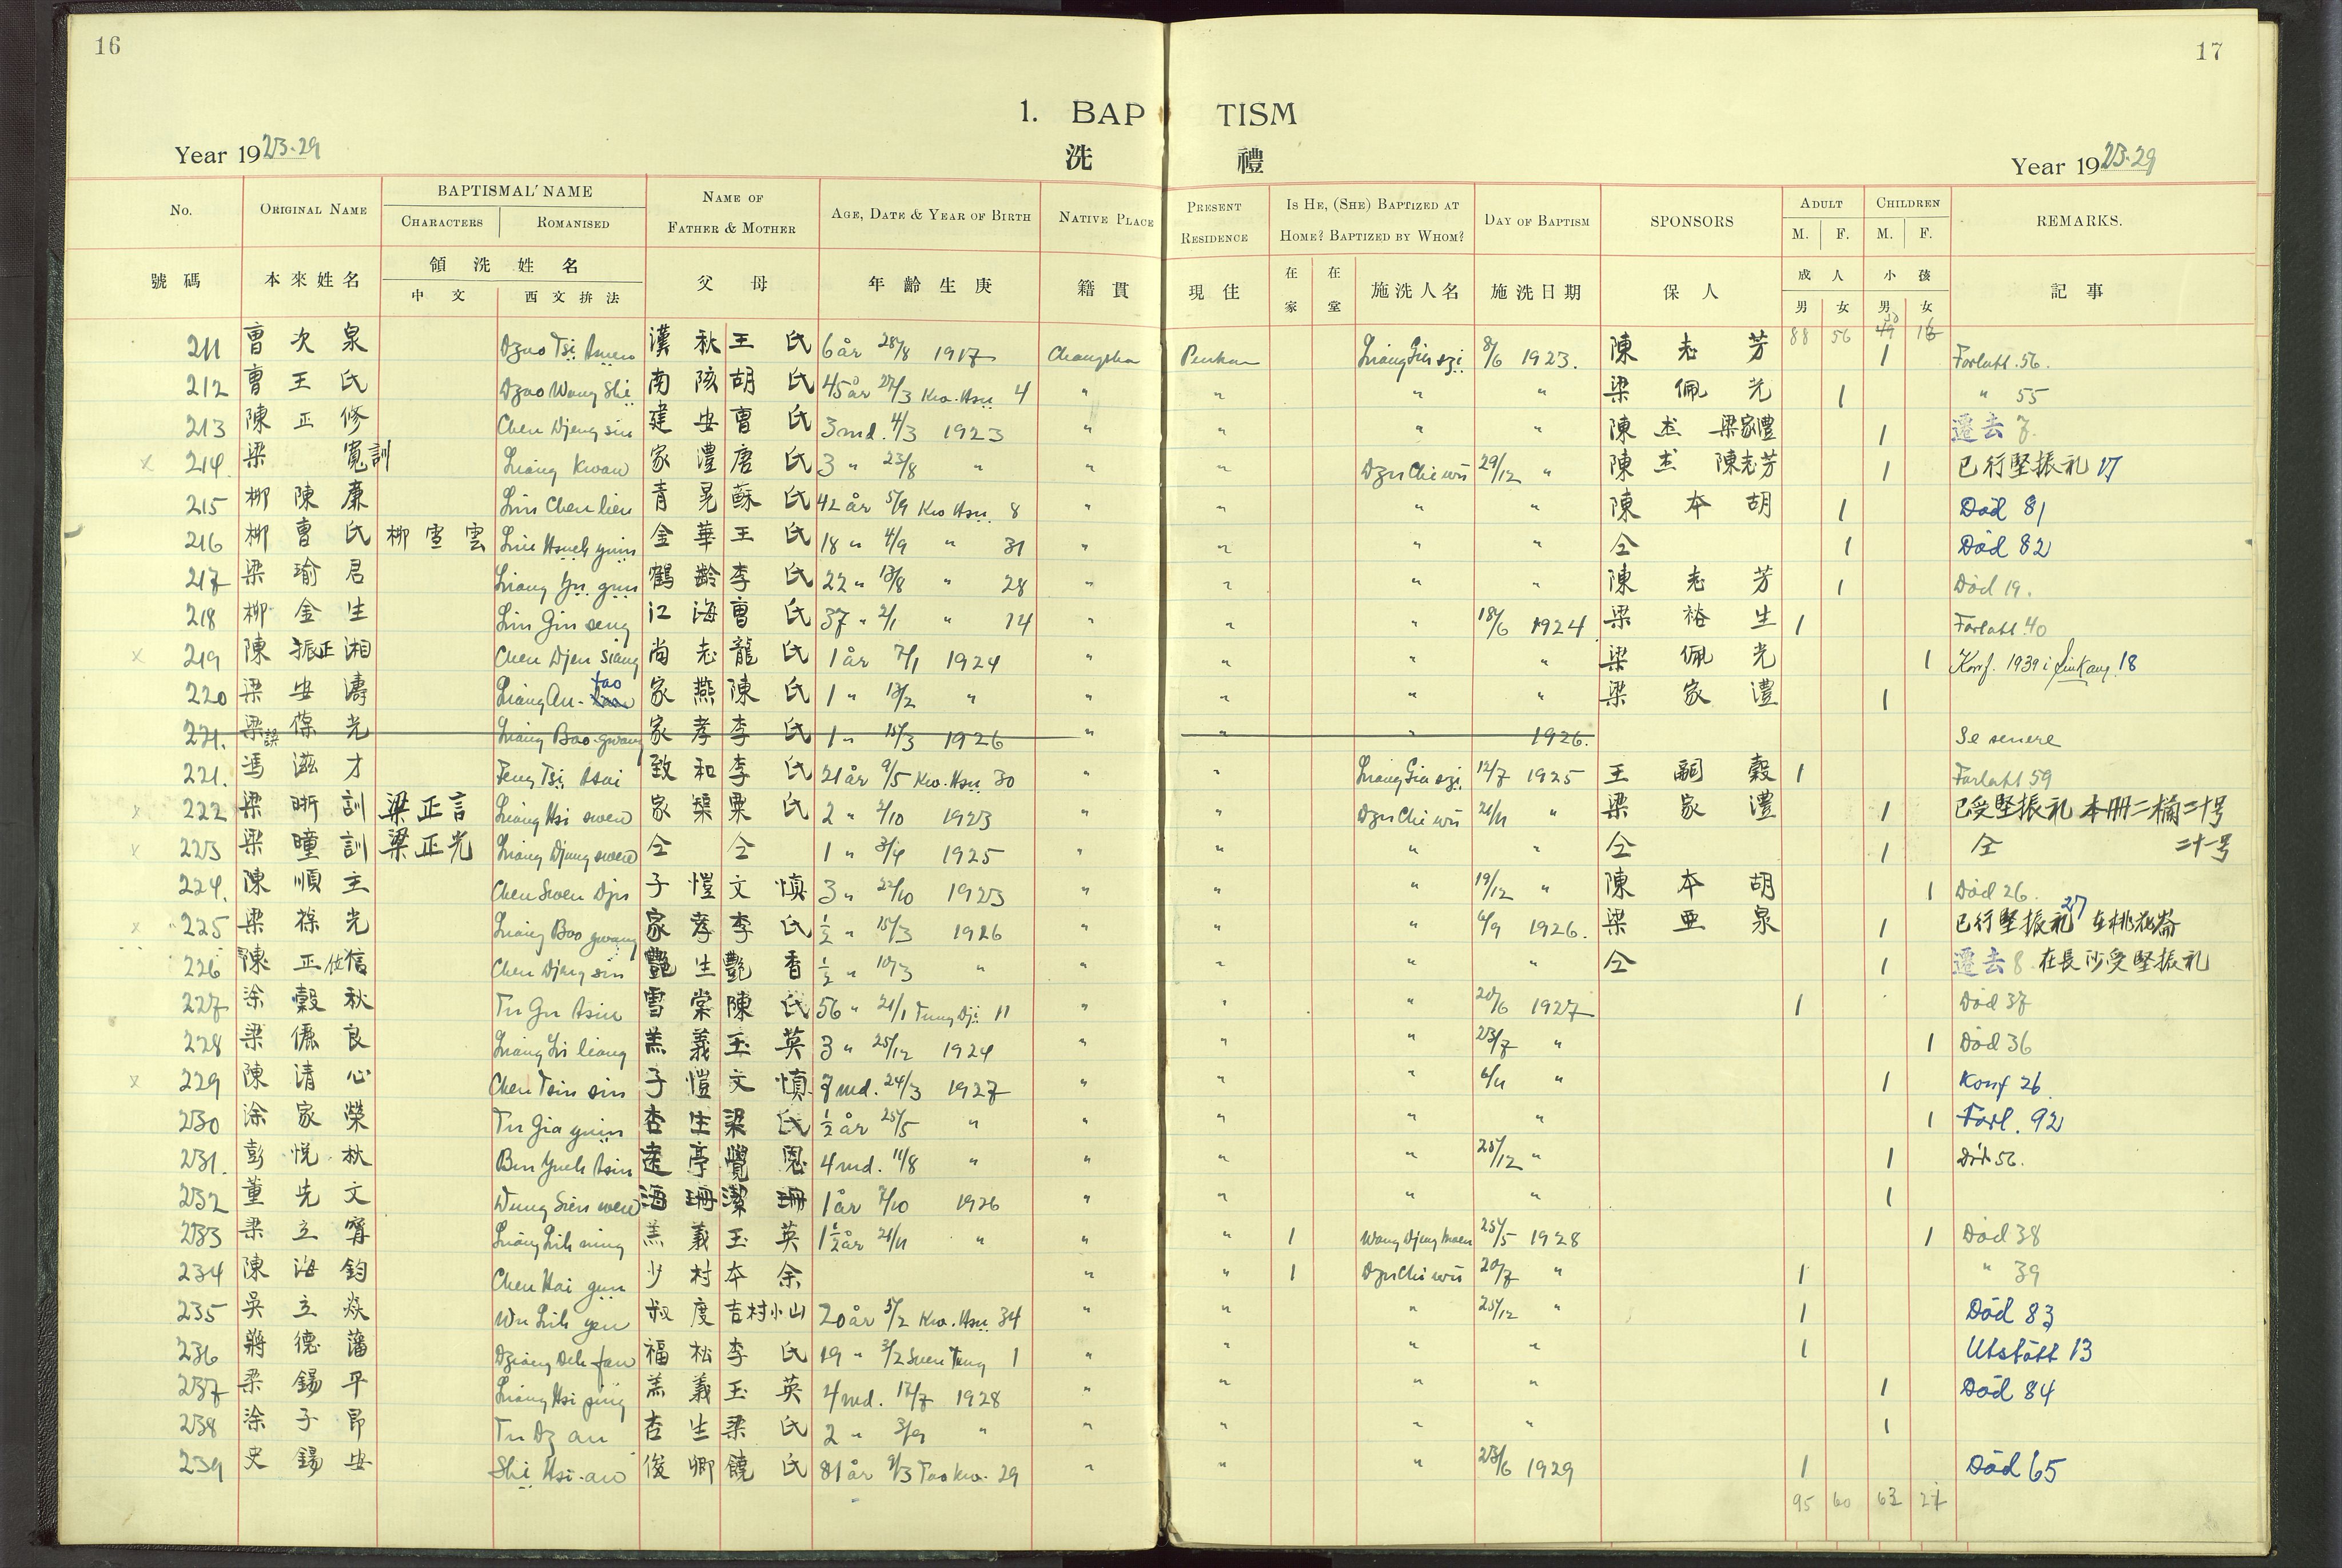 16
17
1. BAP TISM
洗 禮
Year 1923-29
Year 1923-29
No. ORIGINAL NAME BAPTISMAL NAME NAME OF FATHER & MOTHER AGE, DATE & YEAR OF BIRTH NATIVE PLACE PRESENT RESIDENCE IS HE, (SHE) BAPTIZED AT HOME? BAPTIZED BY WHOM? DAY OF BAPTISM SPONSORS ADULT CHILDREN REMARKS.
CHARACTERS ROMANISED M. F. M. F.
號碼 本來姓名 領洗姓名 父母 年齡生庚 籍貫 現住 在家 在堂 施洗人名 施洗日期 保人 成人 小孩 記事
中文 西文拚法 男 女 男 女
88 56
211 曹次泉 漢秋 王氏 6 år 28/8 1917 Changsha 8/6 1923. 陳志芳 1 Förlatt. 56.
212 曹王氏 Dzao Wang Shi 南陔 胡氏 45 år 27/3 Kwo. Hsu 4 " " " " 梁佩光 1 " 55
213 陳正修 Chen Djeng siu 建安 曹氏 3 md. 4/3 1923 " " " " 陳杰 梁家澧 1 遷去 7.
x 214 梁寬訓 Liang Kwan 家澧 唐氏 3 " 23/8 " " " Dzu Chi wu 29/12 " 陳杰 陳志芳 1 已行堅振礼 17
215 柳陳廉 Liu Chen lien 青晃 蘇氏 42 år 5/9 Kwo Hsu 8 " " " " 陳本胡 1 Död 81
216 柳曹氏 柳雪雲 Liu Hsueh yuin 金華 王氏 18 " 4/9 " 31 " " " " 仝 1 Död 82
217 梁瑜君 Liang Yu gun 鶴齡 李氏 22 " 13/8 " 28 " " " " 陳志芳 1 Död 19.
218 柳金生 Liu Gin seng 江海 曹氏 37 " 2/1 " 14 " " " 18/6 1924 梁裕生 1 Förlatt 40
x 219 陳振正湘 Chen Djen siang 尚志 龍氏 1 år 7/1 1924 " " " " 梁佩光 1 Konf. 1939 i Sinkang 18
220 梁安濤 Liang An-tao 家燕 陳氏 1 " 13/2 " " " " " 梁家澧 1
221. 梁葆光 Liang Bao-gwang 家孝 李氏 1 " 15/3 1926 " " " 1926. Se senere
221. 馮滋才 Feng Tsi tsai 致和 李氏 21 år 9/5 Kwo. Hsu 30 " " 12/7 1925 王嗣穀 1 Förlatt 59
x 222 梁晰訓 梁正言 Liang Hsi swen 家榘 粟氏 2 " 2/10 1923 " " Dzu Chi wu 21/11 " 梁家澧 1 已受堅振礼 本冊二欄二十号
x 223 梁曈訓 梁正光 Liang Djung swen 仝 仝 1 " 3/4 1925 " " " " 仝 1 仝 二十一号
224. 陳順主 Chen Swen Dju 子愷 文慎 3 " 22/10 1923 " " " 19/12 " 陳本胡 1 Död 26.
x 225 梁葆光 Liang Bao gwang 家孝 李氏 ½ " 15/3 1926 " " " 6/9 1926. 梁亜泉 1 已行堅振礼 27 在桃花崙
226 陳正信 Chen Djeng sin 艷生 艷香 ½ " 10/3 " " " " " 仝 1 遷去 8 在長沙受堅振礼
227 涂穀秋 Tu Gu tsiu 雪棠 陳氏 56 " 21/1 Tung Dji 11 " " " 20/6 1927 1 Död 37
228 梁儷良 Liang Li liang 羔義 玉英 3 " 25/12 1924 " " " 23/7 " 1 Död 36
x 229 陳清心 Chen Tsin sin 子愷 文慎 7 md. 24/3 1927 " " " 6/11 " 1 Konf 26
230 涂家榮 Tu Gia yuin 杏生 梁氏 ½ år 25/5 " " " " " 1 Förl. 92
231. 彭悅秋 遠亭 覺恩 4 md. 11/8 " " " " 25/12 " 1 Död 56.
232 董先文 Dung Sien wen 海珊 潔珊 1 år 7/10 1926 " " " " 1
233 梁立甯 Liang Lih ning 羔義 玉英 1½ år 21/11 " " " 1 25/5 1928 1 Död 38
234 陳海鈞 Chen Hai gun 少村 本余 " " 1 Dzu Chi wu 20/7 " 1 " 39
235 吳立焱 Wu Lih yen 叔度 吉村小山 20 år 5/2 Kwo. Hsu 34 " " " 25/12 " 1 Död 83
236 蔣德藩 Dziang Deh fan 福松 李氏 19 " 3/2 Suen Tung 1 " " " " 1 Utstött 13
237 梁錫平 Liang Hsi ping 羔義 玉英 4 md. 17/7 1928 " " " " 1 Död 84
238 涂子昂 Tu Dz an 杏生 梁氏 2 " 3/9 " " " " " 1
239 史錫安 Shi Hsi-an 俊卿 饒氏 81 år 9/3 Tao kw. 29 " " " 23/6 1929 1 Död 65
95 60